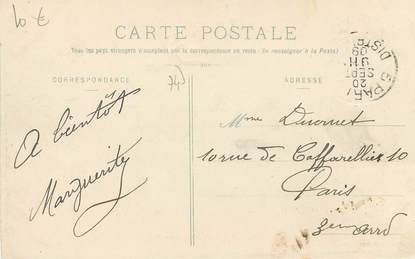 10 €
CARTE POSTALE
Tous les pays étrangers n'acceptent pas la correspondance au recto. (Se renseigner à la Poste)
CORRESPONDANCE
ADRESSE
PARIS
DIST
20
SEPT
09
A bientôt
Marguerite
Mme
10 rue de Caffarelli 10
Paris
3em arrd